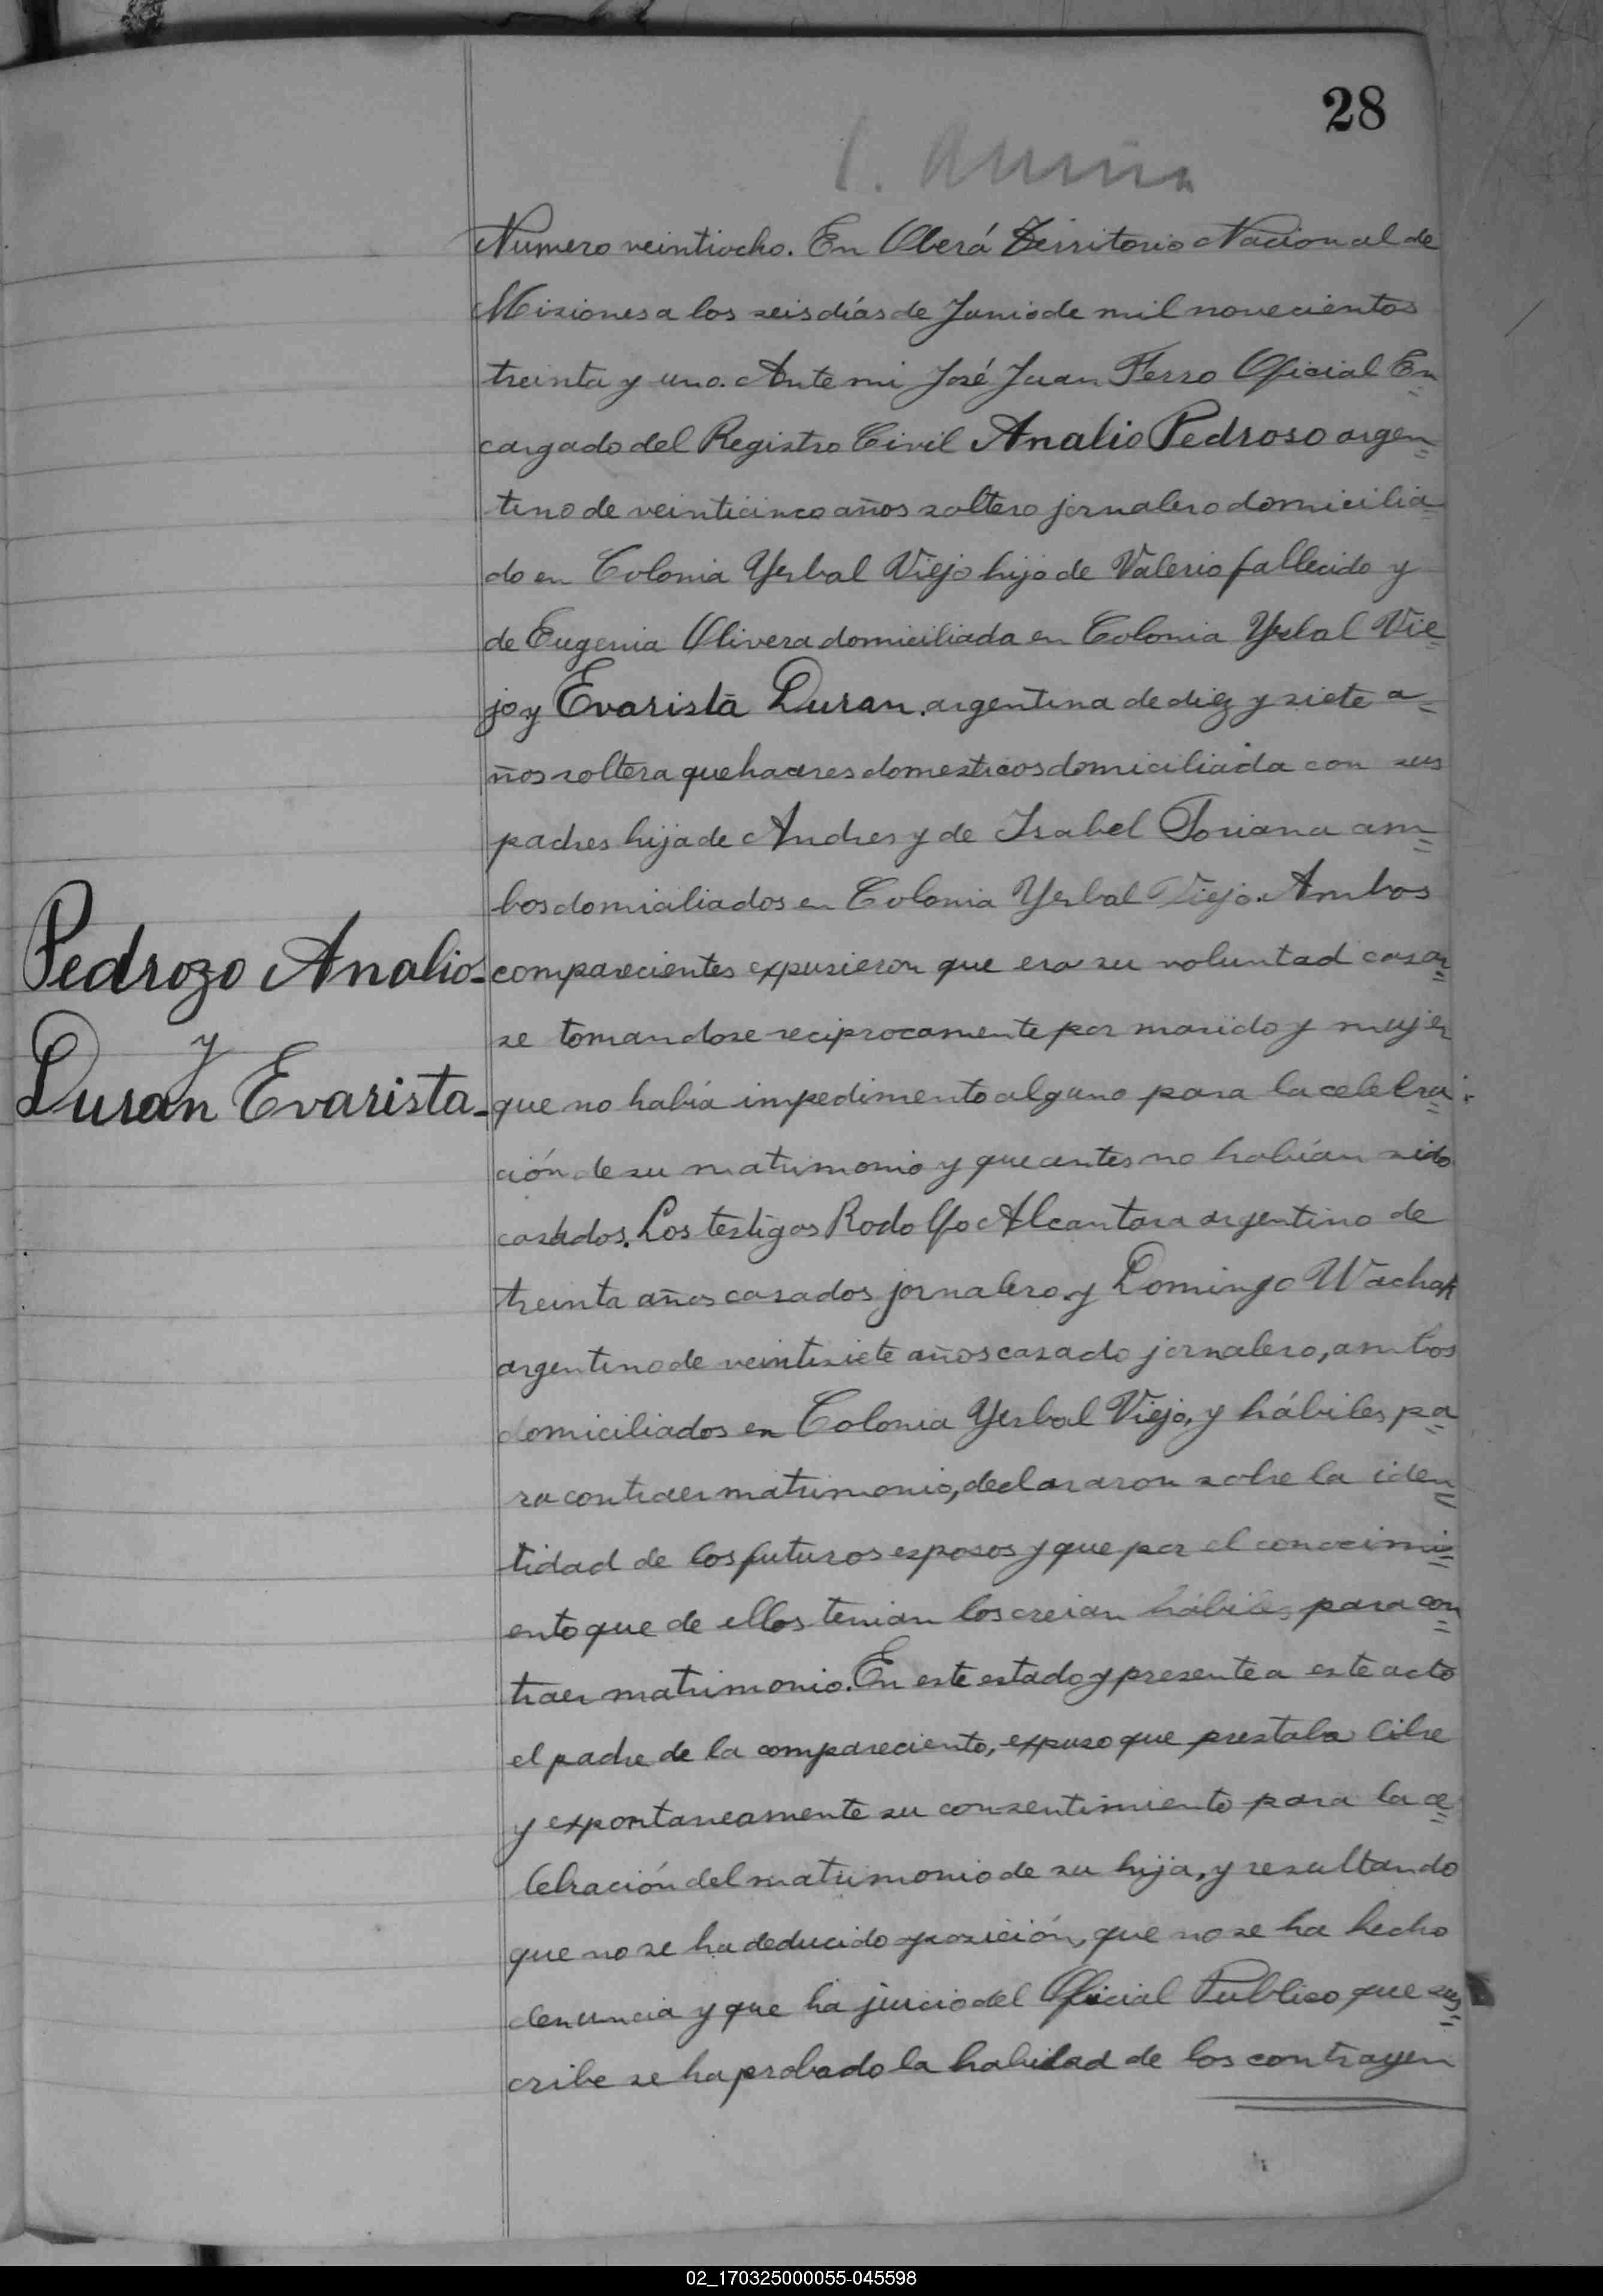 28
Numero veintiocho. En Oberá Territorio Nacional de
Misiones a los seis días de Junio de mil novecientos
treinta y uno. Ante mi José Juan Ferro Oficial En
cargado del Registro Civil Analio Pedroso argen
tino de veinticinco años soltero jornalero domicilia
do en Colonia Yerbal Viejo hijo de Valerio fallecido y
de Eugenia Olivera domiciliada en Colonia Yerbal Vie
jo y Evarista Duran. argentina de diez y siete a
ños soltera quehaceres domesticos domiciliada con sus
padres hija de Andres y de Isabel Soriana am
bos domiciliados en Colonia Yerbal Viejo. Ambos
Pedrozo Analio
y
Duran Evarista
comparecientes expusieron que era su voluntad casar
se tomandose reciprocamente por marido y mujer
que no había impedimento alguno para la celebra
ción de su matrimonio y que antes no habían sido
casados. Los testigos Rodolfo Alcantara argentino de
treinta años casados jornalero y Domingo Wachak
argentino de veintisiete años casado jornalero, ambos
domiciliados en Colonia Yerbal Viejo, y hábiles pa
ra contraer matrimonio, declararon sobre la iden
tidad de los futuros esposos y que por el conocimi
ento que de ellos tenian los creian hábiles para con
traer matrimonio. En este estado y presente a este acto
el padre de la compareciento, expuso que prestaba libre
y expontaneamente su consentimiento para la ce
lebración del matrimonio de su hija, y resultando
que no se ha deducido oposición, que no se ha hecho
denuncia y que ha juicio del Oficial Publico que sus
cribe se ha probado la habilidad de los contrayen
02_170325000055-045598